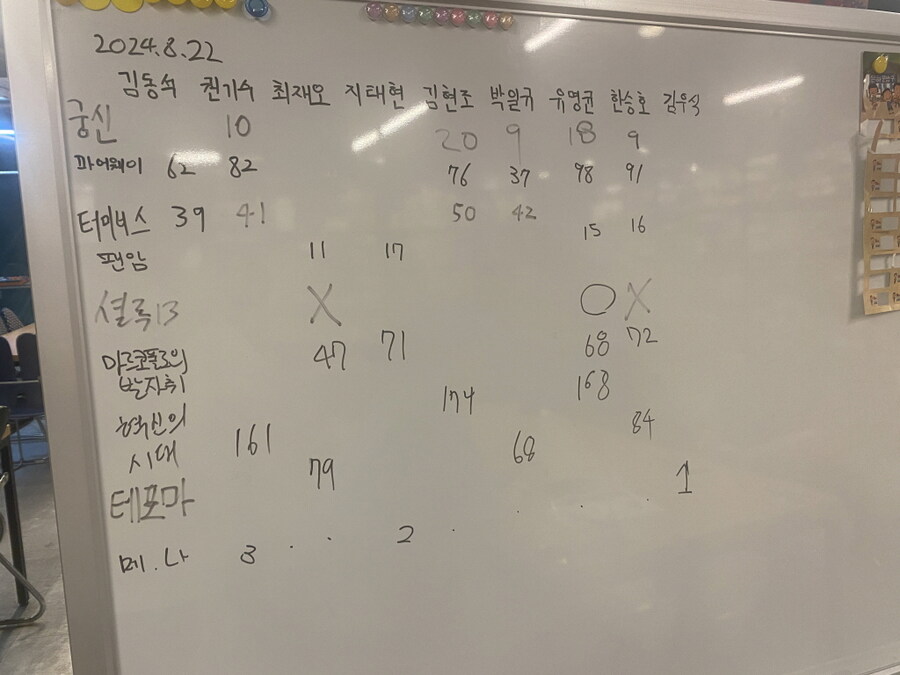 2024.8.22
김동석 권기수 최재오 지태현 김현조 박일규 유영균 한승호 김우식
궁신 10 20 9 18 9
파어웨이 62 82 76 37 98 91
터미너스 39 41 50 42 15 16
팬암 11 17
셜록13 X O X
마르코폴로의 47 71 68 72
발자취 174 168
혁신의 84
시대 161 68
테포마 79 1
메.나 3 . . 2 . . . .